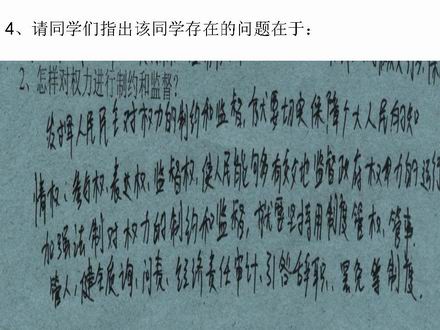 4、请同学们指出该同学存在的问题在于：
2、怎样对权力进行制约和监督？
发挥人民民主对权力的制约和监督，就要切实保障广大人民的知
情权、参与权、表达权、监督权，使人民能够有效地监督政府权力的运行
加强法制对权力的制约和监督，就要坚持用制度管权、管事
管人，健全质询、问责、经济责任审计、引咎辞职、罢免等制度.